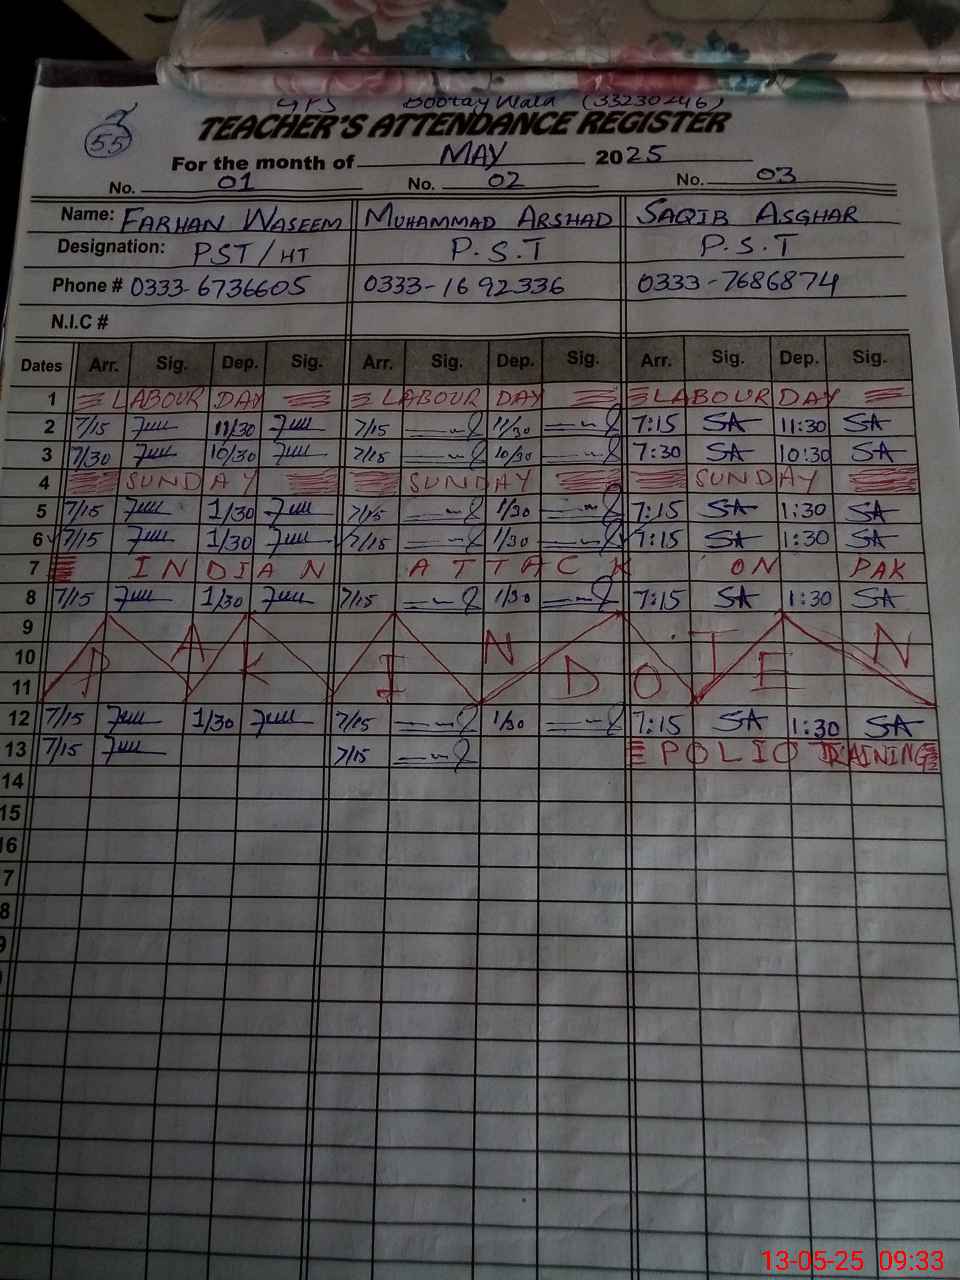 GPS Bootay Wala (33230246)
55
TEACHER'S ATTENDANCE REGISTER
For the month of MAY 2025
No. 01 No. 02 No. 03
Name: FARHAN WASEEM MUHAMMAD ARSHAD SAQIB ASGHAR
Designation: PST/HT P.S.T P.S.T
Phone # 0333-6736605 0333-1692336 0333-7686874
N.I.C #
Dates Arr. Sig. Dep. Sig. Arr. Sig. Dep. Sig. Arr. Sig. Dep. Sig.
1 LABOUR DAY LABOUR DAY LABOUR DAY
2 7/15 11/30 7/15 11/30 7:15 SA 11:30 SA
3 7/30 10/30 7/15 10/30 7:30 SA 10:30 SA
4 SUNDAY SUNDAY SUNDAY
5 7/15 1/30 7/15 1/30 7:15 SA 1:30 SA
6 7/15 1/30 7/15 1/30 7:15 SA 1:30 SA
7 INDIAN ATTACK ON PAK
8 7/15 1/30 7/15 1/30 7:15 SA 1:30 SA
9
10 PAK INDO TEN
11
12 7/15 1/30 7/15 1/30 7:15 SA 1:30 SA
13 7/15 7/15 POLIO TRAINING
14
15
16
7
8
9
13-05-25 09:33